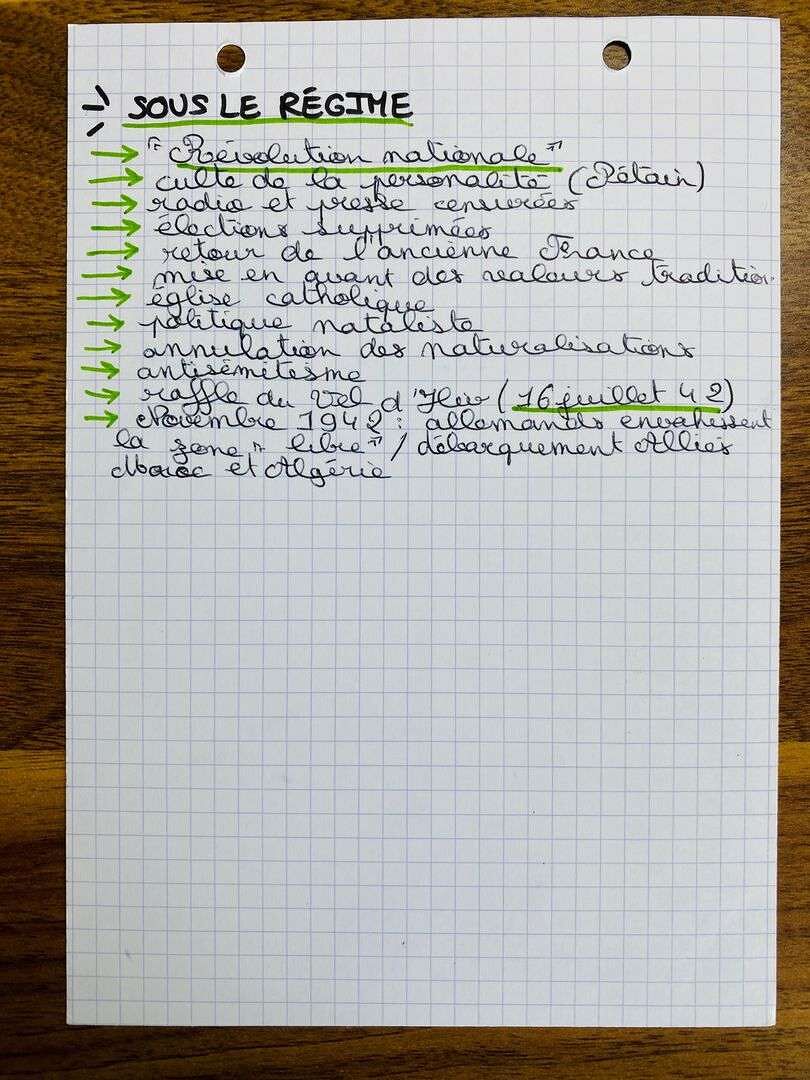 SOUS LE RÉGIME
→ "Révolution nationale"
→ culte de la personalité (Pétain)
→ radio et presse censurées
→ élections supprimées
→ retour de l'ancienne France
→ mise en avant des valeurs tradition.
→ église catholique
→ politique nataliste
→ annulation des naturalisations
→ antisémitisme
→ raffle du Vel d'Hiv (16 juillet 42)
→ Novembre 1942 : allemands envahissent
la zone "libre" / débarquement Alliés
Maroc et Algérie